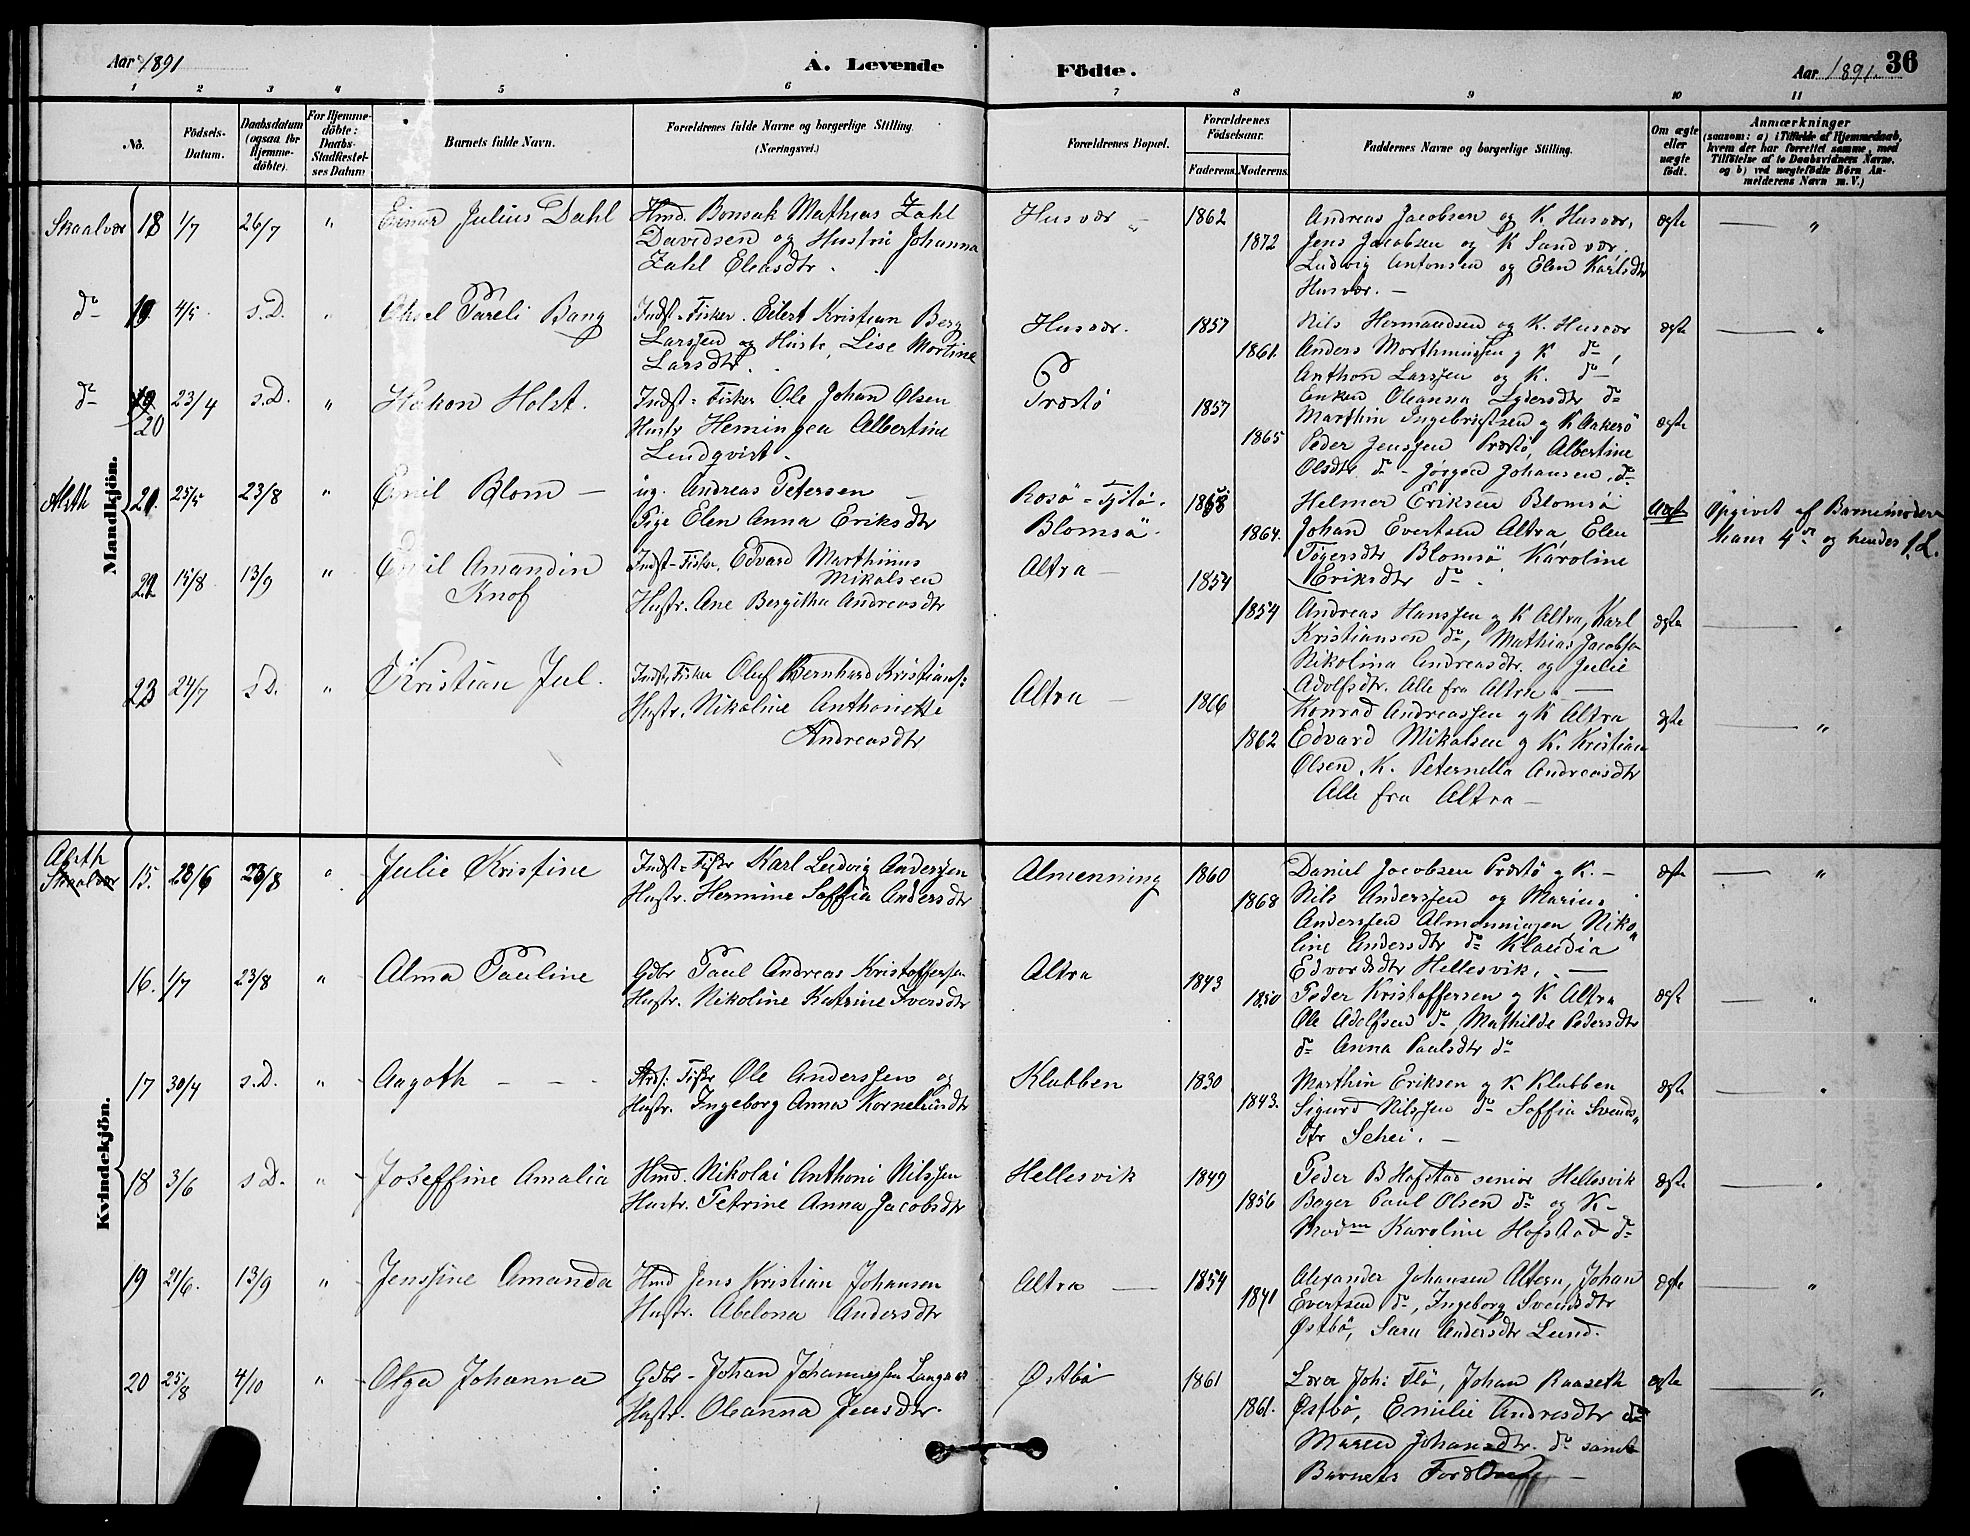 Aar 1891
A. Levende
Födte.
Aar 1891.
36
1 2 3 4 5 6 7 8 9 10 11
No.
Födsels-
Datum.
Daabsdatum
(ogsaa for
Hjemme-
döbte).
For Hjemme-
döbte:
Daabs-
Stadfestel-
ses Datum
Barnets fulde Navn.
Forældrenes fulde Navne og borgerlige Stilling
(Næringsvei.)
Forældrenes Bopæl.
Forældrenes
Födselsaar.
Faderens.
Moderens.
Faddernes Navne og borgerlige Stilling.
Om ægte
eller
uægte
født.
Anmærkninger
(saasom: a) i Tilfælde af Hjemmedaab,
hvem der har forrettet samme, med
Tilføielse af to Daabsvidners Navne.
og b) ved uægtefødte Börn An-
melderens Navn m. V.)
Mandkjön.
Skaalvær 18 1/7 26/7 " Einar Julius Dahl
Hmd. Bonsak Mathias Zahl
Davidsen og Hustru Johanna
Zahl Eliasdtr.
Husvær - 1862 1872
Andreas Jacobsen og K. Husvær,
Jens Jacobsen og K Sandvær.
Ludvig Antonsen og Elen Karlsdtr
Husvær. -
ægte "
do 19 4/5 s.D. " Aksel Pareli Bang
Indst. Fisker. Eilert Kristian Berg
Larssen og Hustr. Lise Martine
Larsdtr.
Husvær. 1857 1861.
Nils Hermandsen og K. Husvær
Anders Morthinussen g K do,
Anthon Larssen og K. do
Enken Oleanna Lydersdtr do
ægte "
do 20 23/4 s.D. " Hakon Holst.
Indst. Fisker Ole Johan Olsen
Hustr Hemingea Albertine
Lindqvist.
Præstö 1857 1865
Marthin Ingebrigtsen g K Aakerö
Peder Jenssen Præstö, Albertine
Olsdtr do - Jörgen Johansen do
ægte
Alsth 21. 25/5 23/8 " Emil Blom -
ug. Andreas Petersen
Pige Elen Anna Eriksdtr
Rosö - Tjötö.
Blomsö 1864.
Helmer Eriksen Blomsöi
Johan Evertsen Altra, Elen
Tögersdtr Blomsö, Karoline
Eriksdtr do
Opgivet af Barnemoderen
hans 4de og hendes 1. L.
22 15/8 13/9 " Emil Amandin
Knof
Indst-Fisker, Edvard Marthinus
Mikalsen
Hustr. Ane Bergitha Andreasdtr
Altra - 1854 1854
Andreas Hanssen g K Altra, Karl
Kristiansen do, Mathias Jacobsen
Nikolina Andreasdtr. og Julie
Adolfsdtr. Alle fra Altra. -
ægte "
23 24/7 s D. " Kristian Jul.
Indst. Fisker Oluf Bernhard Kristians:
Hustr. Nikoline Anthonette
Andreasdtr
Altra - 1866 1862
Konrad Andreassen g K Altra
Edvard Mikalsen g K. Kristian
Olsen. K. Peternella Andreasdtr
Alle fra Altra -
ægte "
Kvindekjön.
Alsth
Skaalvær 15. 23/6 23/8 " Julie Kristine
Indst-Fisker Karl Ludvig Anderssen
Hustr. Hermine Soffia Andersdtr
Almenning 1860 1868
Daniel Jacobsen Præstö g K. -
Nils Anderssen og Marius
Anderssen Almenningen, Niko„
line Andersdtr do Klaudia
Edvardsdtr Hellesvik. -
ægte "
16. 1/7 23/8 " Alma Pauline
Gdbr Paul Andreas Kristoffersen
Hustr. Nikoline Katrine Iversdtr
Altra 1843 1850
Peder Kristoffersen g K Altra
Ole Adolfsen do, Mathilde Pedersdtr
do Anna Paulsdtr do
ægte "
17 30/4 s.D. " Aagoth - - -
Inds: Fiskr Ole Anderssen og
Hustr. Ingeborg Anna Korneliusdtr
Klubben 1830 1843.
Marthin Eriksen g K Klubben
Sigurd Nilssen do Soffia Svends„
dtr Schei. -
ægte "
18 3/6 s D. " Joseffine Amalia
Hmd. Nikolai Anthoni Nilssen
Hustr. Petrine Anna Jacobsdtr
Hellesvik 1849 1856
Peder B Hofstad senior Hellesvik
Bager Paul Olsen do og K -
Madm Karoline Hofstad do
ægte "
19 21/6. 13/9 " Jenssine Amanda
Hmd Jens Kristian Johansen
Hustr. Abelona Andersdtr
Altra - 1854 1841
Alexander Johansen Altern, Johan
Evertsen do, Ingeborg Svendsdtr
Østbö, Sara Andersdtr Lund.
ægte "
20 25/8 4/10 " Olga Johanna
Gdbr - Johan Johannessen Langaas
Hustr. Oleanna Jensdtr.
Østbö 1861 1861.
Lorn Joh: Flö, Johan Raaseth
Østbö, Emilie Andreasdtr do
Maren Johansdtr. do samt
Barnets
ægte "